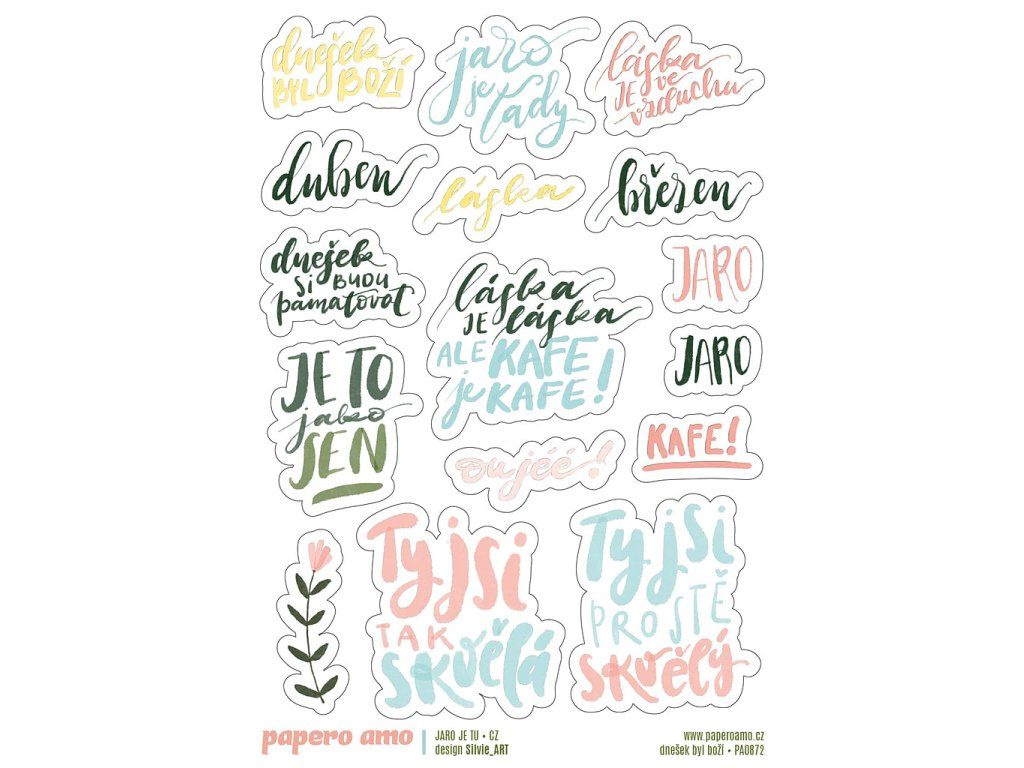 dnešek
BYL BOŽÍ
jaro
je
tady
láska
JE ve
vzduchu
duben
láska
březen
dnešek
Si BUDU
pamatovat
láska
JE láska
ALE KAFE
je KAFE!
JARO
JARO
JE TO
jako
SEN
oujéé!
KAFE!
Ty jsi
TAK
skvělá
Ty jsi
PROSTĚ
skvělý
papero amo
JARO JE TU • CZ
design Silvie_ART
www.paperoamo.cz
dnešek byl boží • PA0872